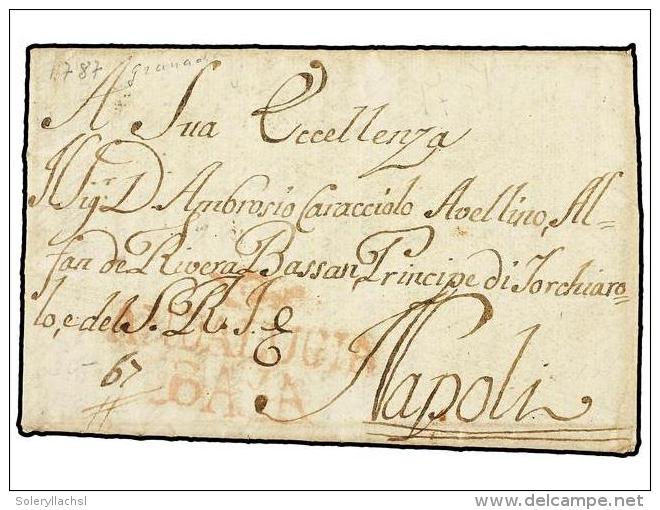 1787 Granad
A Sua Eccellenza
Il Sigr. D. Ambrosio Caracciolo Avellino, Al=
fan de Rivera Bassan Principe di Torchiaro=
lo, e del S. R. I. &
ANDALUCIA
BAXA
67
Napoli
Soleryllachsl
delcampe.net